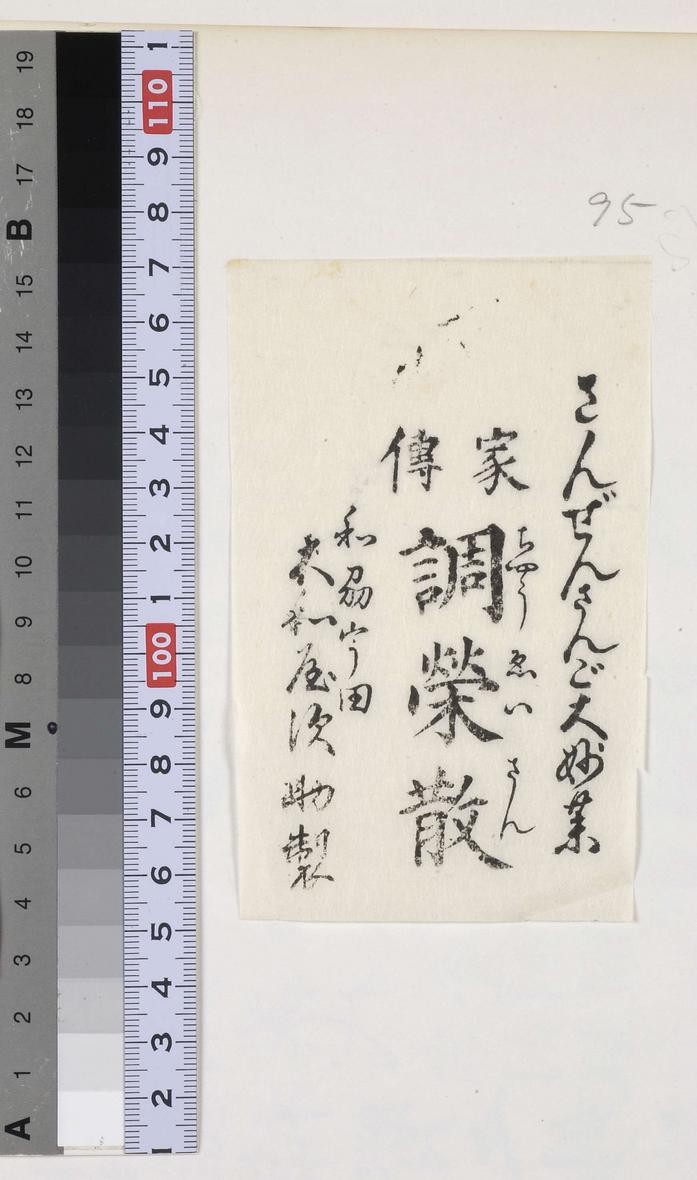 95
さんぜんさんご大妙薬
家傳
調榮散
ちやうゑいさん
和刕宇田
大和屋次助製
B 19 18 17 15 14 13 12 11 10 9 8 M 6 5 4 3 2 1 A
1 110 9 8 7 6 5 4 3 2 1 100 9 8 7 6 5 4 3 2 1